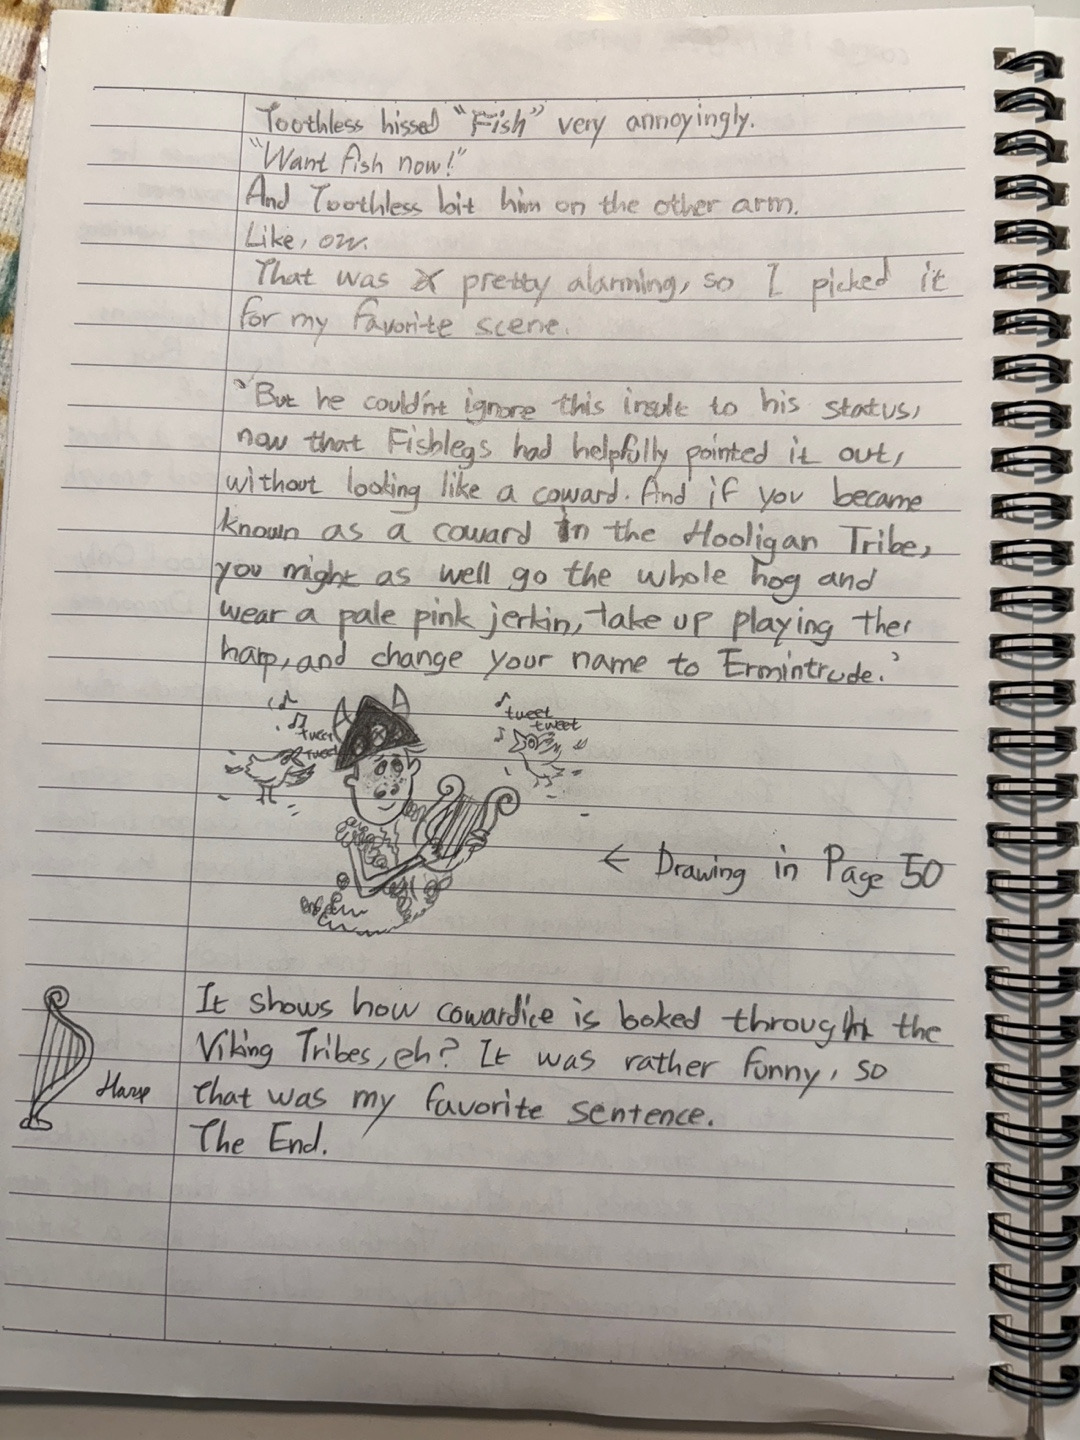 Toothless hissed "Fish" very annoyingly.
"Want fish now!"
And Toothless bit him on the other arm.
Like, ow.
That was pretty alarming, so I picked it
for my favorite scene.
"But he couldn't ignore this insult to his status,
now that Fishlegs had helpfully pointed it out,
without looking like a coward. And if you became
known as a coward in the Hooligan Tribe,
you might as well go the whole hog and
wear a pale pink jerkin, take up playing the
harp, and change your name to Ermintrude.'
tweet
tweet
tweet
tweet
← Drawing in Page 50
It shows how cowardice is boked through the
Viking Tribes, eh? It was rather funny, so
that was my favorite sentence.
Harp
The End.